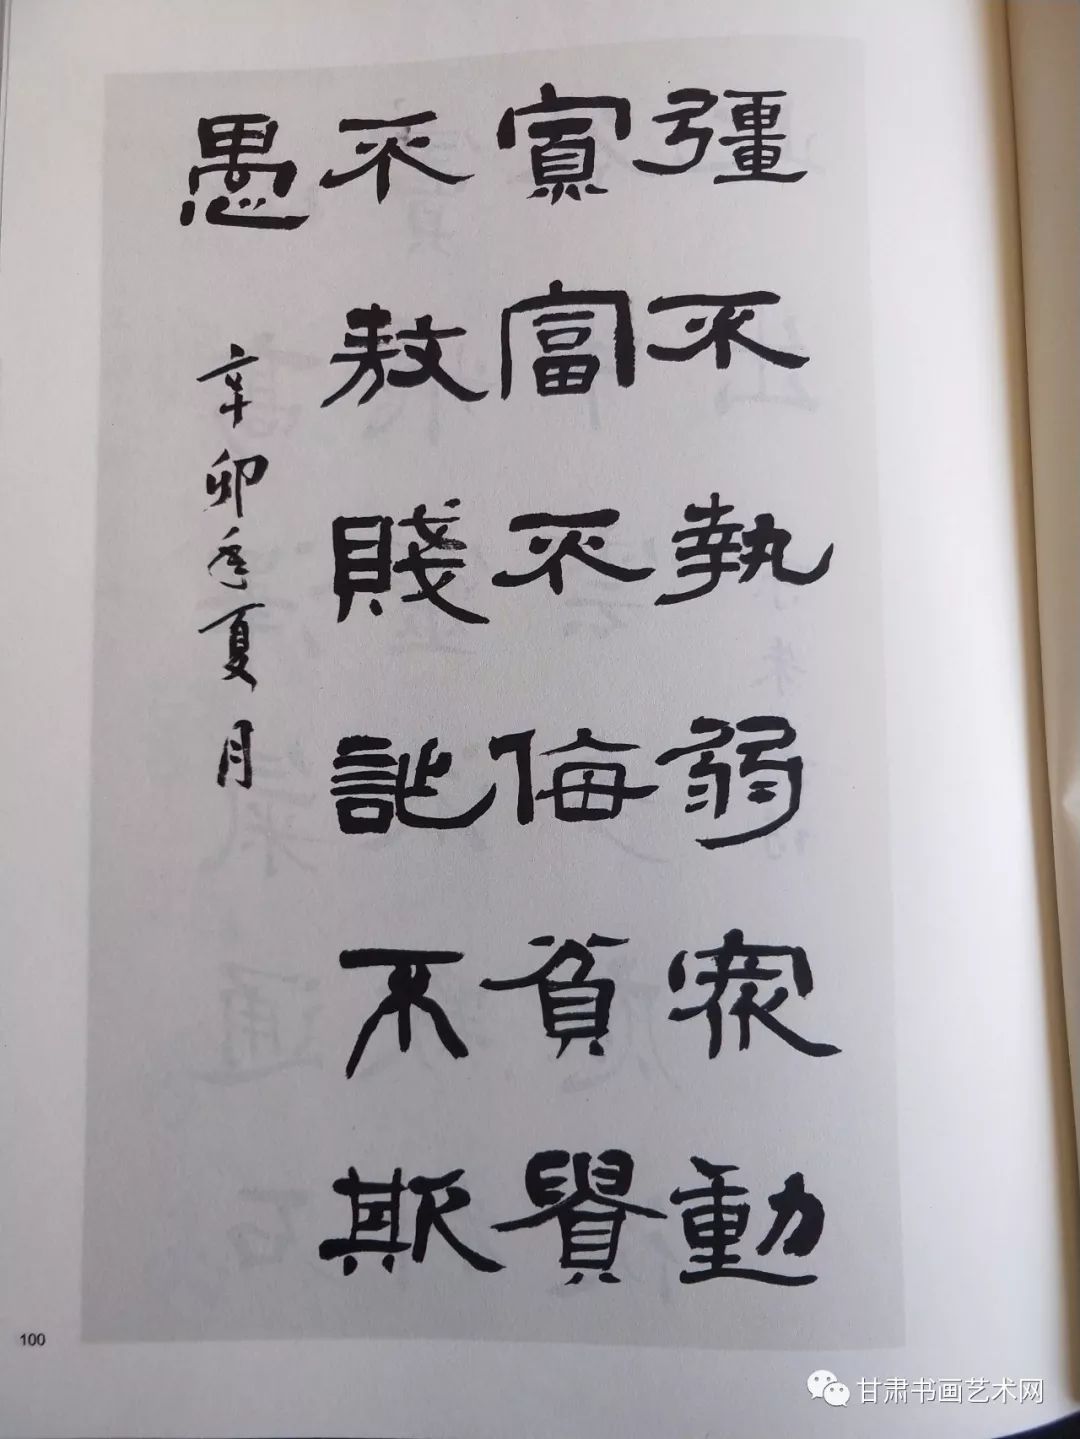 彊不執弱衆動
寡富不侮貧貴
不敖賤詐不欺
愚
辛卯年夏月
100
甘肃书画艺术网